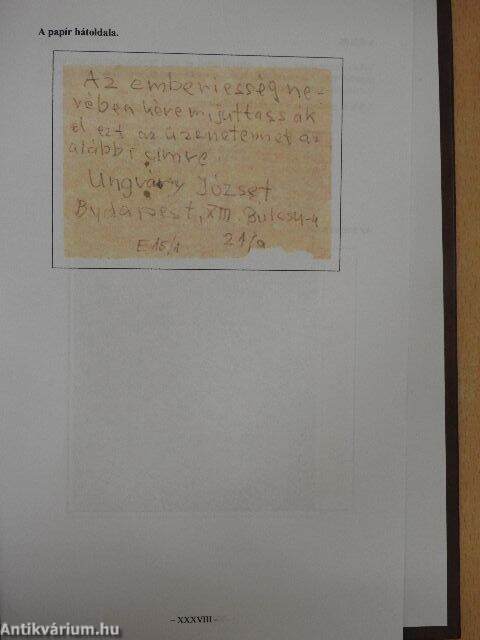 A papír hátoldala.
Az emberiesség ne-
vében kérem, juttassák
el ezt az üzenetemet az
alábbi címre:
Ungváry József
Budapest, XIII. Bulcsu-u
21/a
E 15/1
– XXXVIII –
Antikvárium.hu